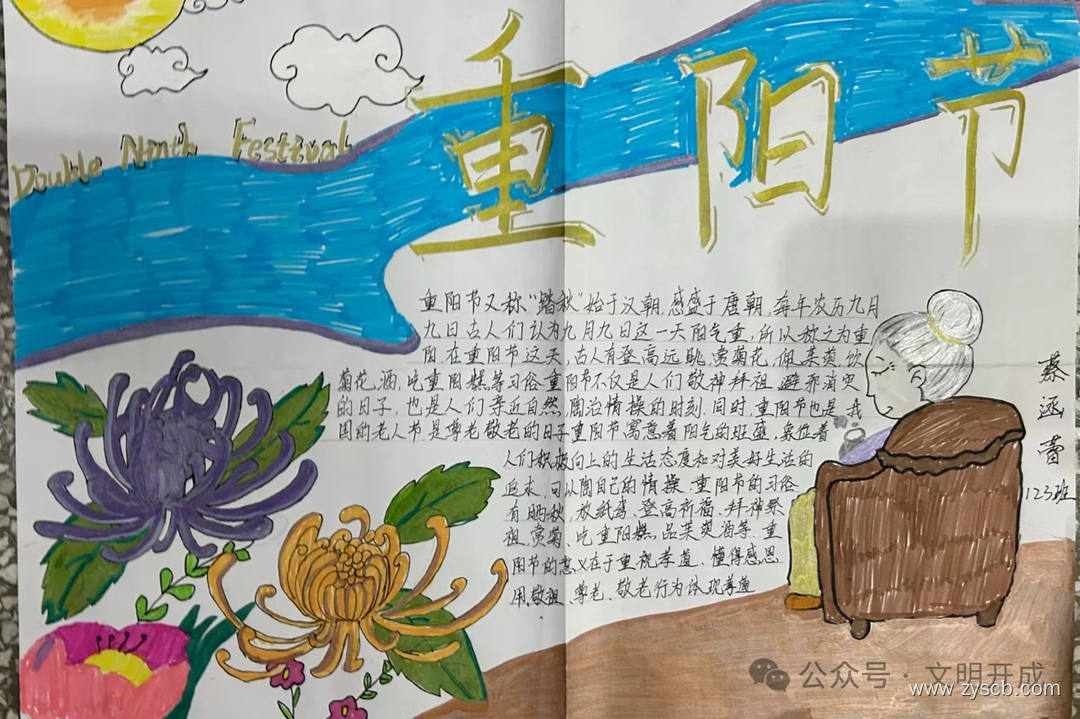 Double Ninth Festival
重阳节
重阳节又称"踏秋"始于汉朝,感盛于唐朝,每年农历九月
九日古人们认为九月九日这一天阳气重,所以称之为重
阳 在重阳节这天,古人有登高远眺,赏菊花,佩茱萸,饮
菊花酒,吃重阳糕等习俗 重阳节不仅是人们敬神拜祖 避亦消灾
的日子,也是人们亲近自然,陶冶情操的时刻.同时,重阳节也是 我
国的老人节 是尊老敬老的日子 重阳节寓意着阳气的旺盛,象位着
人们积极向上的生活态度和对美好生活的
追求,可以陶自己的情操 重阳节的习俗
有 晒秋,放纸鸢,登高祈福,拜神祭
祖,赏菊、吃重阳糕,品茱萸酒等 重
阳节的意义在于重视孝道、懂得感恩
用敬祖、尊老、敬老行为体现孝道
蔡
蕾
123班
公众号·文明开成
www.zyscb.com